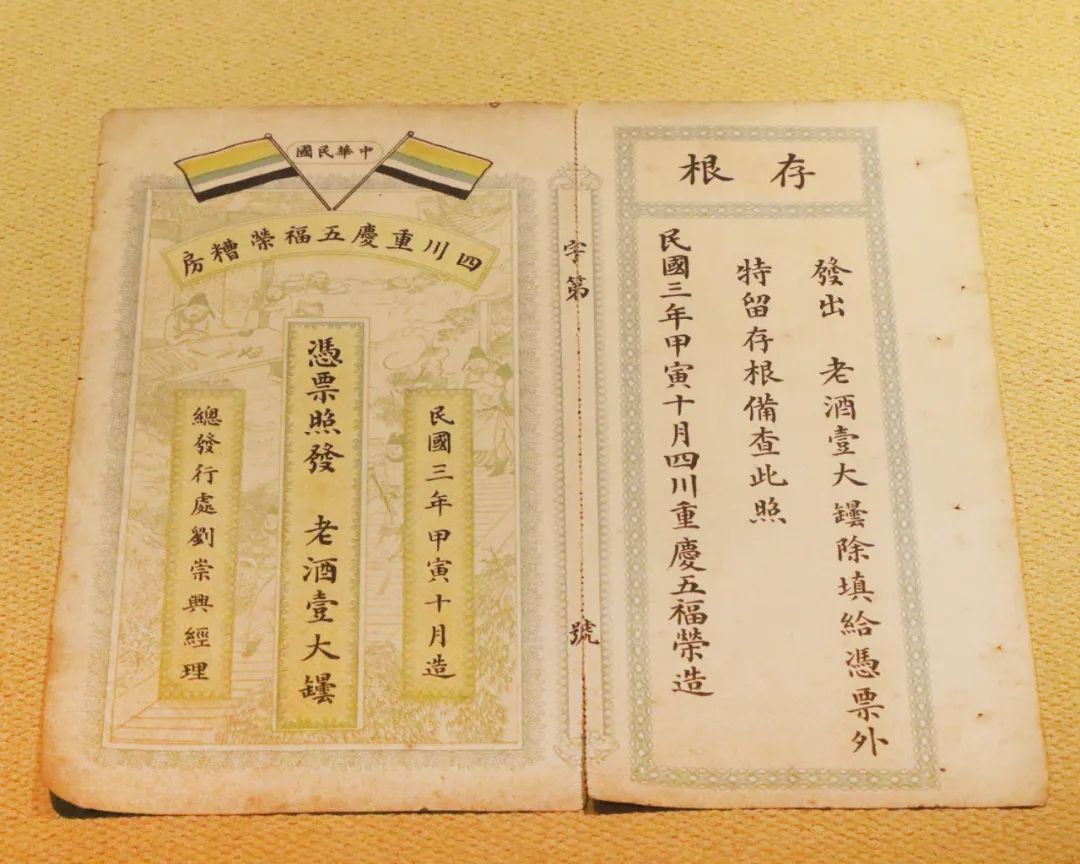 存根
發出 老酒壹大罎除填給憑票外
特留存根備查此照
民國三年甲寅十月四川重慶五福榮造
字第 號
中華民國
四川重慶五福榮糟房
民國三年甲寅十月造
憑票照發 老酒壹大罎
總發行處劉崇興經理